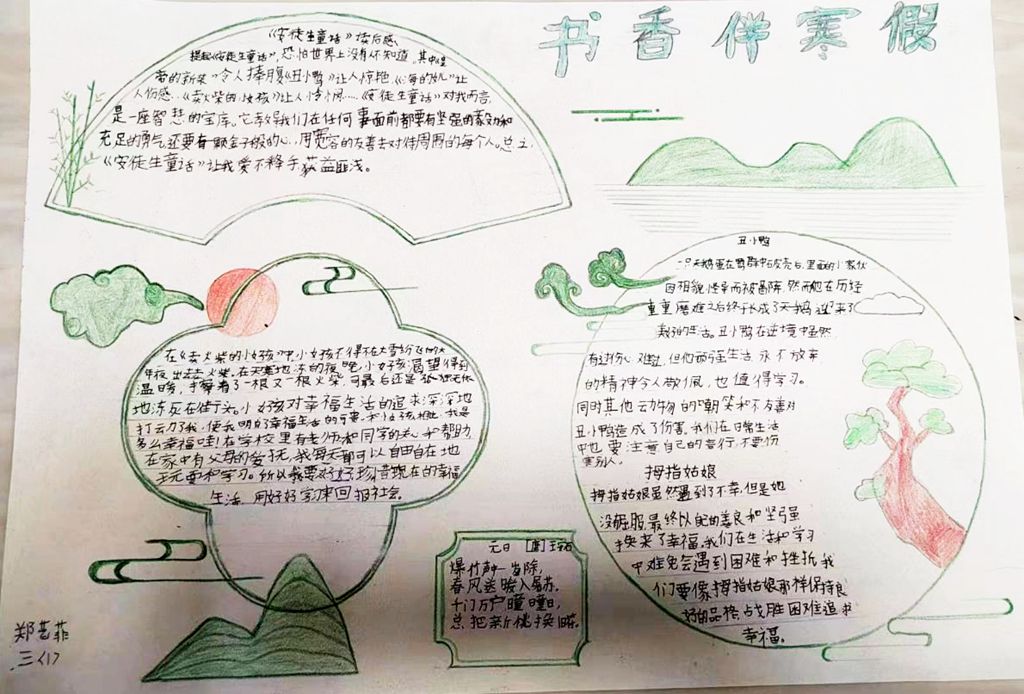 书香伴寒假
《安徒生童话》读后感
提起《安徒生童话》,恐怕世界上没有人不知道。其中《皇
帝的新装》令人捧腹《丑小鸭》让人惊艳,《海的女儿》让
人伤感。《卖火柴的小女孩》让人怜悯……《安徒生童话》对我而言,
是一座智慧的宝库。它教导我们在任何事面前都要有坚强的毅力和
充足的勇气,还要有一颗金子般的心,用宽容的友善去对待周围的每个人。总之,
《安徒生童话》让我爱不释手获益匪浅。
在《卖火柴的小女孩》中,小女孩不得不在大雪纷飞的大
年夜出去卖火柴。在天寒地冻的夜晚,小女孩渴望得到
温暖,手擦着了一根又一根火柴,可最后还是孤独无依
地冻死在街头。小女孩对幸福生活的追求深深地
打动了我,使我明白了幸福生活的可贵,和小女孩相比,我是
多么幸福哇!在学校里有老师和同学的关心和帮助,
在家中有父母的爱抚,我每天都可以自由自在地
玩耍和学习。所以我要好好珍惜现在的幸福
生活,用好好学习来回报社会。
丑小鸭
一只天鹅蛋在鸭群中破壳后,里面的小家伙
因相貌怪异而被鄙弃,然而他在历经
重重磨难之后终于长成了天鹅,迎来了
美好的生活。丑小鸭在逆境中虽然
有过伤心难过,但他面强生活,永不放弃
的精神令人敬佩,也值得学习。
同时其他动物的嘲笑和不友善对
丑小鸭造成了伤害,我们在日常生活
中也要注意自己的言行,不要伤
害别人。
拇指姑娘
拇指姑娘虽然遇到了不幸,但是她
没屈服,最终以她的善良和坚强
换来了幸福,我们在生活和学习
中难免会遇到困难和挫折,我
们要像拇指姑娘那样保持良
好的品格,战胜困难追求
幸福。
元日 [唐]王安石
爆竹声中一岁除,
春风送暖入屠苏。
千门万户曈曈日,
总把新桃换旧
郑艺菲
三〈1〉